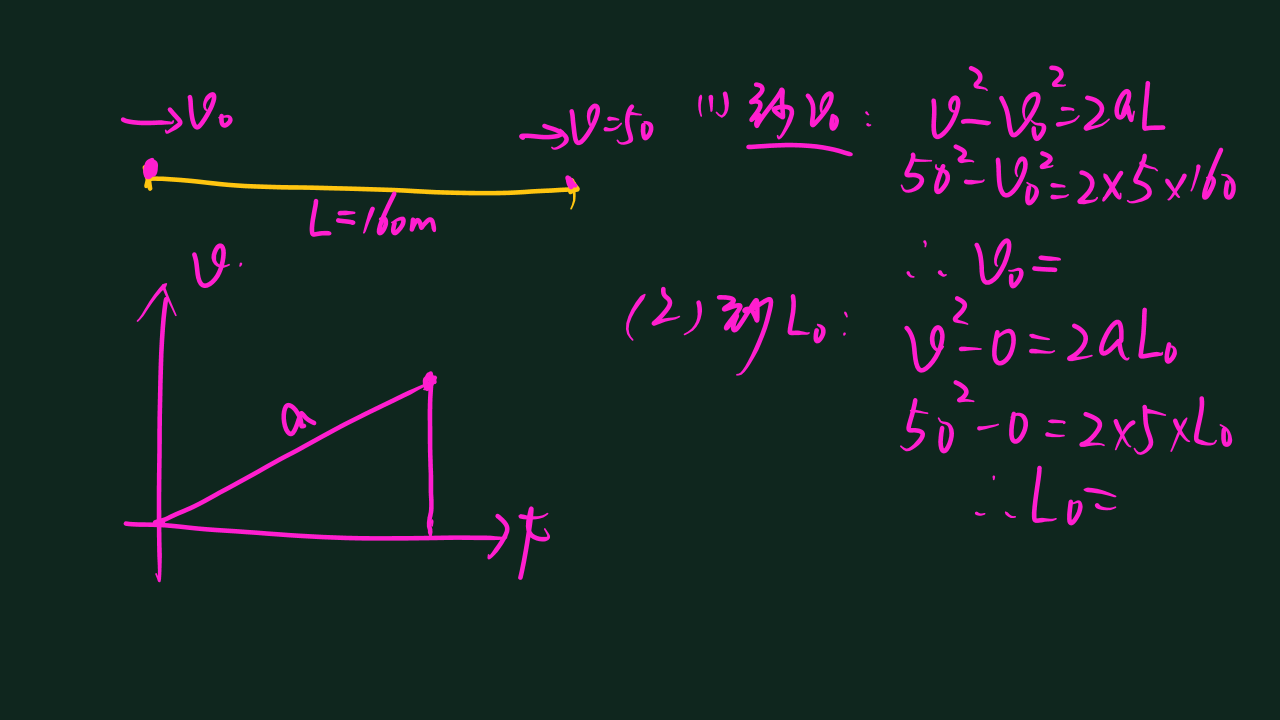 →v₀
→v=50
L=160m
v
a
t
(1) 求v₀:
v²-v₀²=2aL
50²-v₀²=2×5×160
∴ v₀=
(2) 求L₀:
v²-0=2aL₀
50²-0=2×5×L₀
∴L₀=